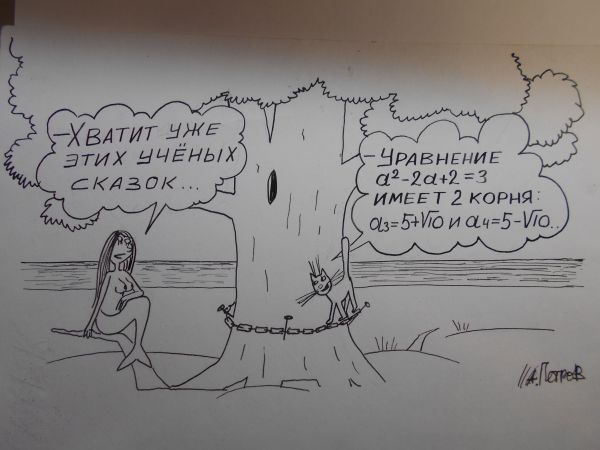 – ХВАТИТ УЖЕ
ЭТИХ УЧЁНЫХ
СКАЗОК...
– УРАВНЕНИЕ
a²-2a+2=3
ИМЕЕТ 2 КОРНЯ:
a₃=5+√10 и a₄=5-√10..
А.Петров